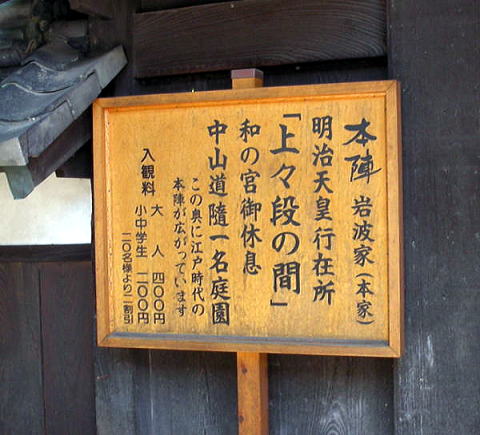 本陣 岩波家(本家)
明治天皇行在所
「上々段の間」
和の宮御休息
中山道随一名庭園
この奥に江戸時代の
本陣が広がっています
入観料 大人 四〇〇円
小中学生 二〇〇円
二〇名様より二割引